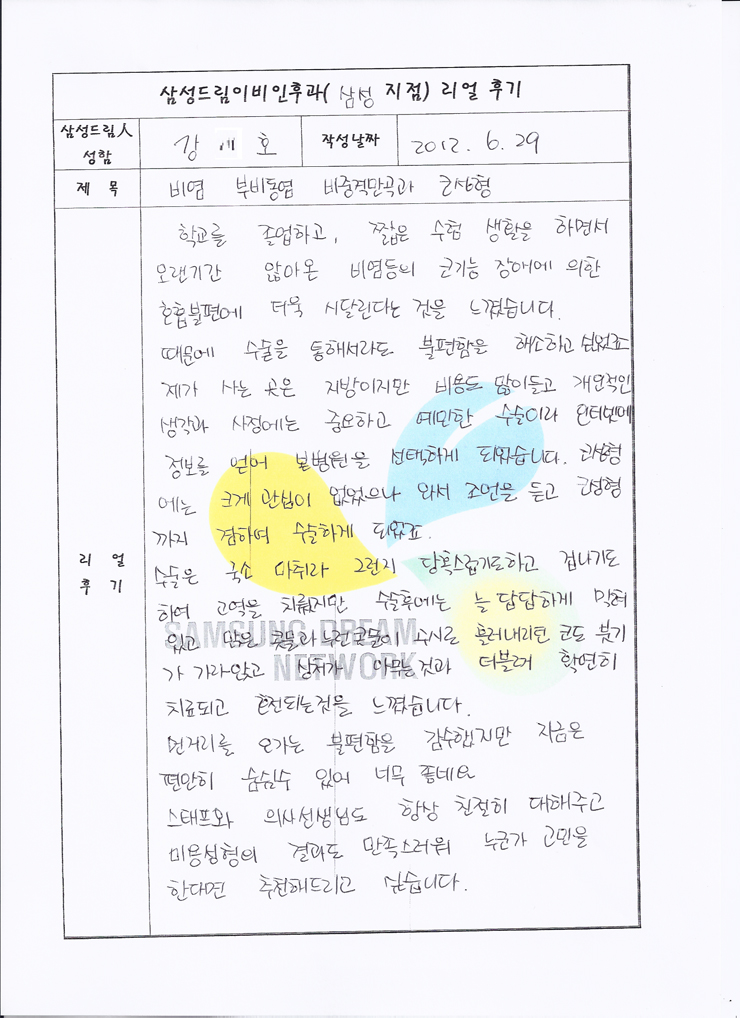 삼성드림이비인후과( 삼성 지점) 리얼 후기
삼성드림人
성함
강 호
작성날짜
2012. 6. 29
제 목
비염 부비동염 비중격만곡과 코성형
리 얼
후 기
학교를 졸업하고, 짧은 수험 생활을 하면서
오랜기간 앓아온 비염등의 코기능 장애에 의한
호흡불편에 더욱 시달린다는 것을 느꼈습니다.
때문에 수술을 통해서라도 불편함은 해소하고 싶었죠
제가 사는 곳은 지방이지만 비용도 많이들고 개인적인
생각과 사정에는 중요하고 예민한 수술이라 인터넷에
정보를 얻어 본병원을 선택하게 되었습니다. 코성형
에는 크게 관심이 없었으나 와서 조언을 듣고 코성형
까지 겸하여 수술하게 되었죠.
수술은 국소 마취라 그런지 당혹스럽기도하고 겁나기도
하여 고역을 치렀지만 수술후에는 늘 답답하게 막혀
있고 맑은 콧물과 누런콧물이 수시로 흘러내리던 코도 붓기
가 가라앉고 상처가 아무는것과 더불어 확연히
치료되고 호전되는것을 느꼈습니다.
먼거리를 오가는 불편함을 감수했지만 지금은
편안히 숨쉴수 있어 너무 좋네요
스태프와 의사선생님도 항상 친절히 대해주고
미용성형의 결과도 만족스러워 누군가 고민을
한다면 추천해드리고 싶습니다.
SAMSUNG DREAM
NETWORK